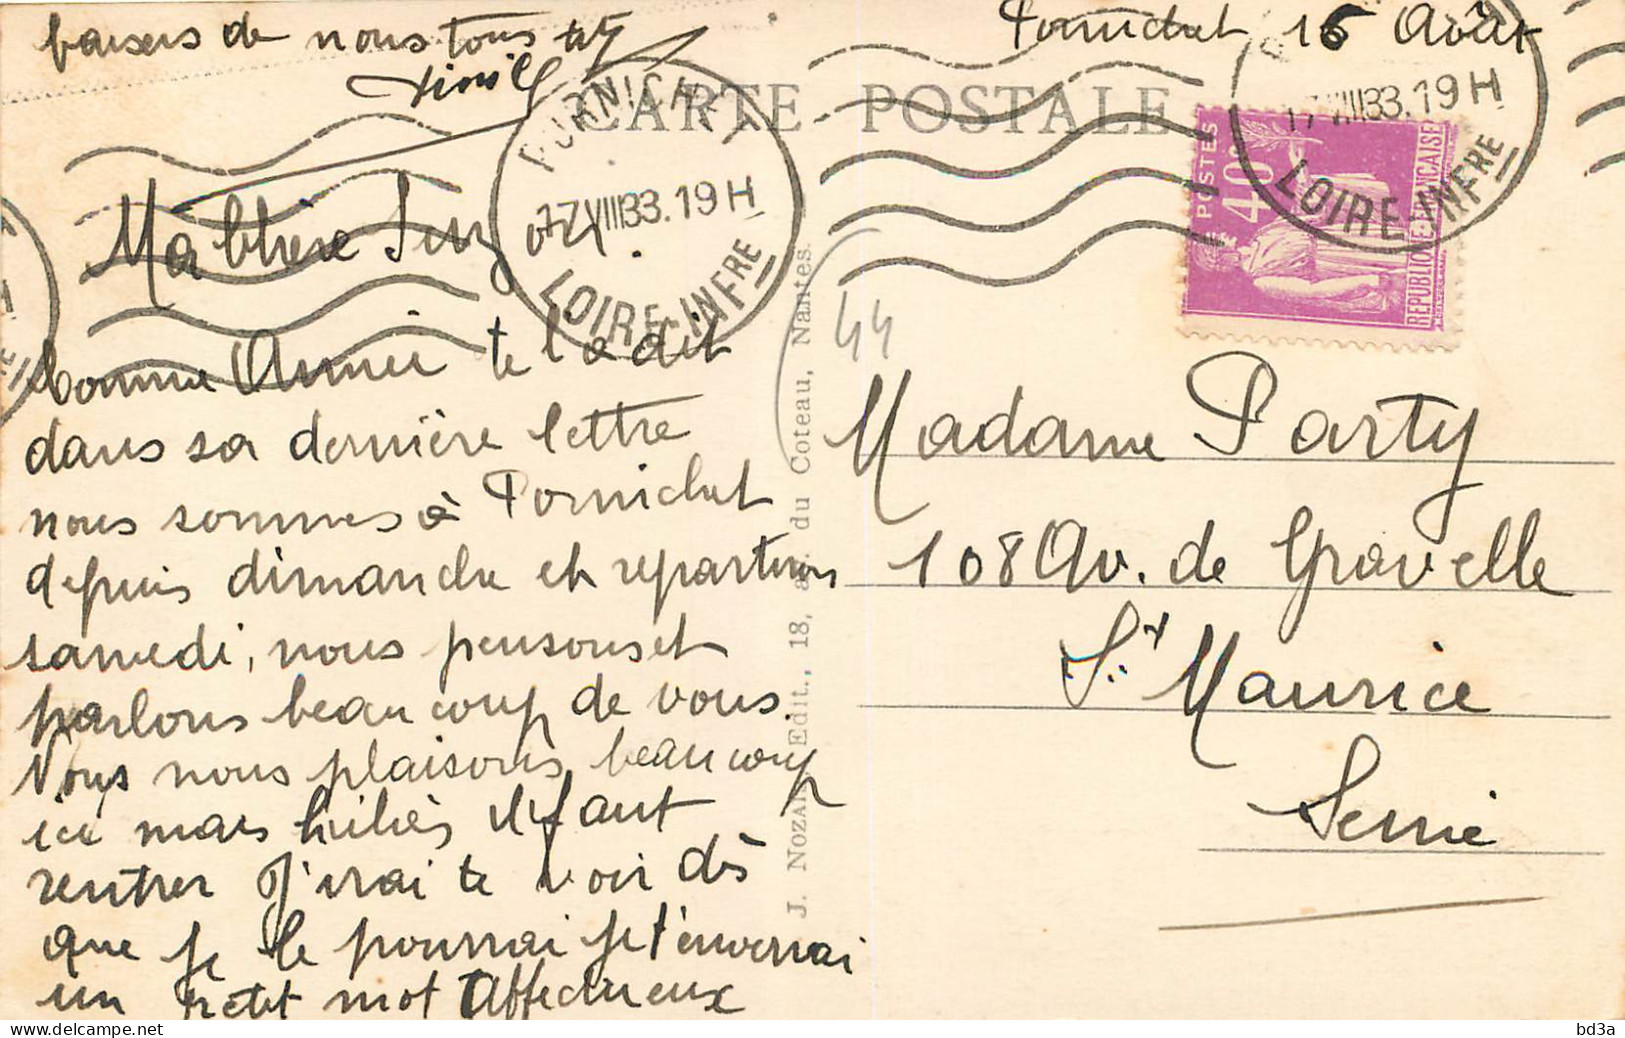 Pornichet 16 Août
CARTE POSTALE
PORNICHET
17 VIII 33. 19 H
LOIRE-INFRE
17 VIII 33. 19 H
LOIRE-INFRE
POSTES
40c
REPUBLIQUE FRANÇAISE
Ma chère
comme Annie te l'a dit
dans sa dernière lettre
nous sommes à Pornichet
depuis dimanche et repartirons
samedi, nous pensons et
parlons beaucoup de vous.
Nous nous plaisons beaucoup
ici mais hélas il faut
rentrer J'irai te voir dès
que je le pourrai je t'enverrai
un petit mot Affectueux
baisers de nous tous
J. NOZAIS Edit., 18, a. du Coteau, Nantes.
44
Madame Party
108 Av. de Gravelle
St Maurice
Seine
bd3a